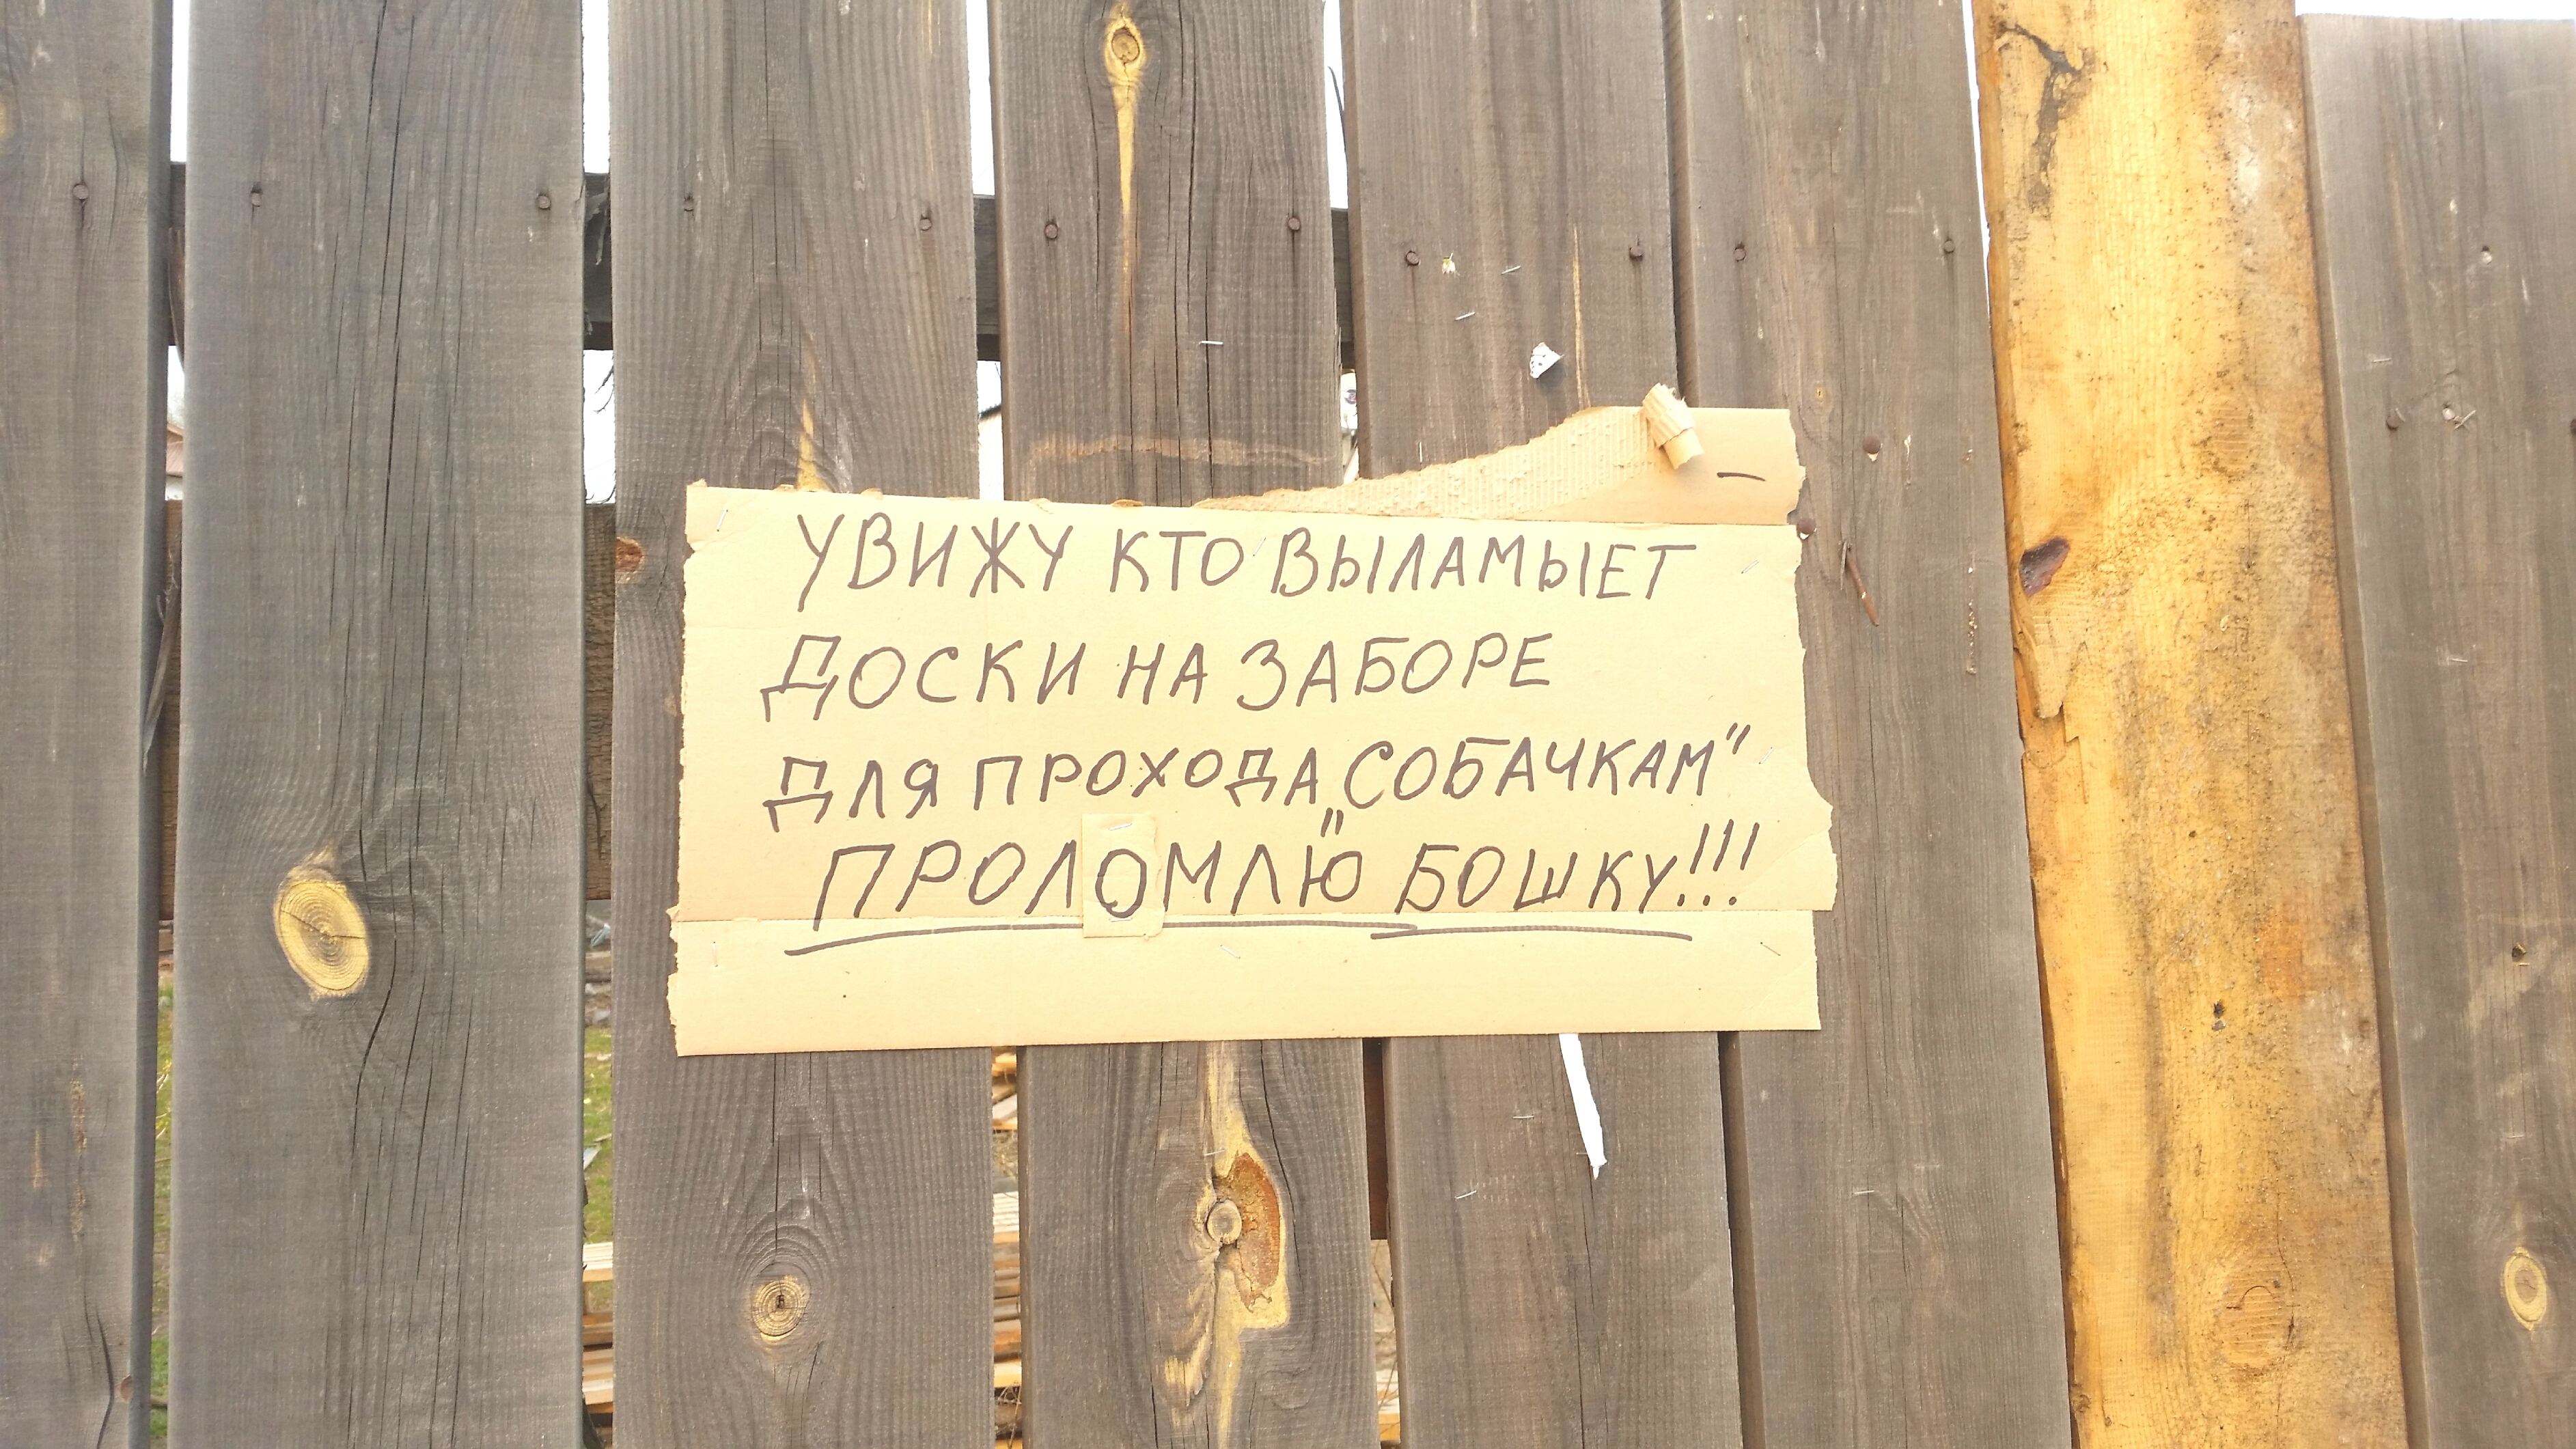 УВИЖУ КТО ВЫЛАМЫЕТ
ДОСКИ НА ЗАБОРЕ
ДЛЯ ПРОХОДА „СОБАЧКАМ"
ПРОЛОМЛЮ БОШКУ!!!